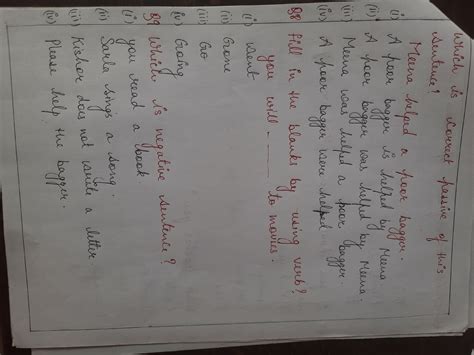 Which is correct passive of this
sentence?
Meena helped a poor bagger.
(i) A poor bagger is helped by Meena
(ii) A poor bagger was helped by Meena.
(iii) Meena was helped a poor bagger
(iv) A poor bagger were helped
Q8 fill in the blanks by using verb?
you will ------ to movies.
(i) Went
(ii) Gone
(iii) Go
(iv) Going
Q9 Which is negative sentence?
(i) you read a book.
(ii) Sarla sings a song.
(iii) Kishor does not write a letter.
(iv) Please help the bagger.